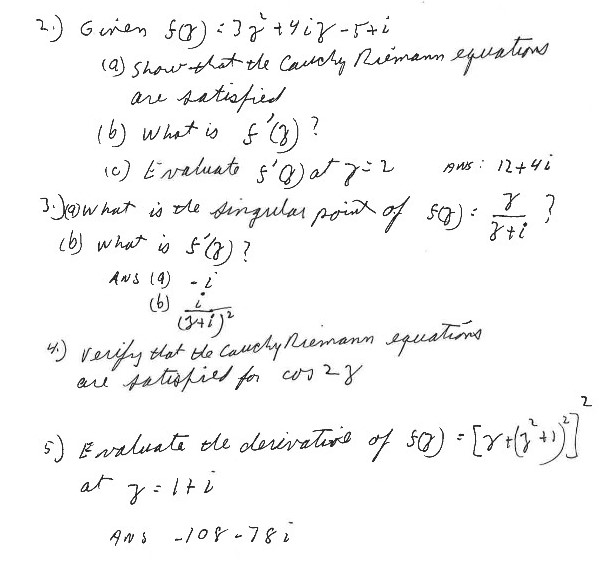 2.) Given f(z) = 3z² + 4iz - 5 + i
(a) Show that the Cauchy Riemann equations
are satisfied
(b) What is f'(z) ?
(c) Evaluate f'(z) at z = 2 ANS: 12+4i
3.)(a) what is the singular point of f(z) = z/(z+i) ?
(b) what is f'(z) ?
ANS (a) -i
(b) i/(z+i)²
4.) Verify that the Cauchy Riemann equations
are satisfied for cos 2z
5.) Evaluate the derivative of f(z) = [z+(z²+1)²]²
at z = 1 + i
ANS -108 - 78i